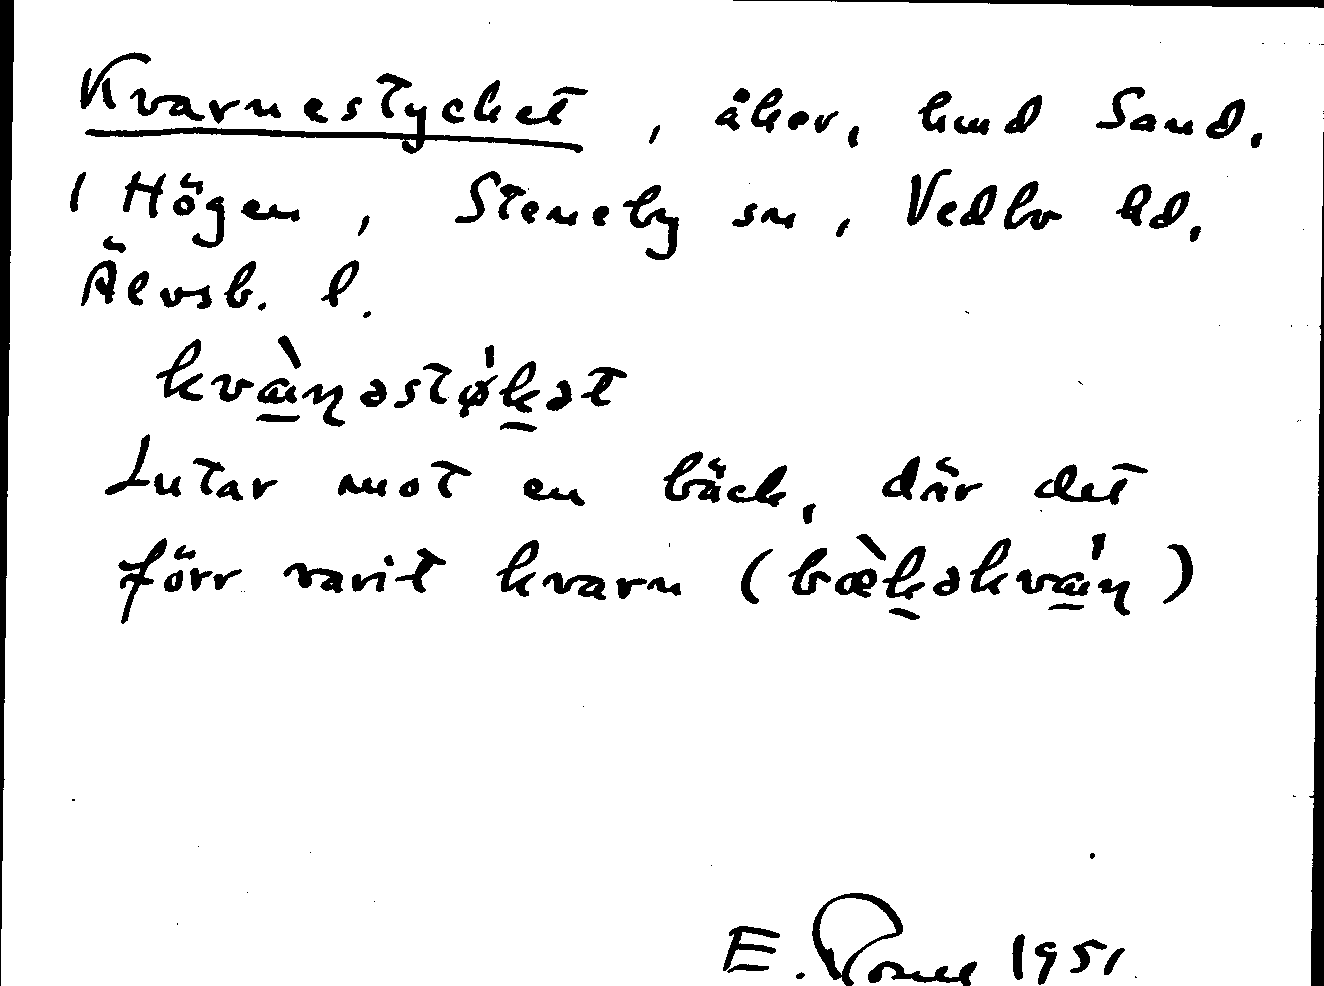 Kvarnestycket, åker, hmd Sand.
i Högen, Steneby sn, Vedbo hd.
Älvsb. l.
kvæ̠̀ɳəstø̍k̠ət
Lutar mot en bäck, där det
förr varit kvarn (bœ̀k̠əkvæ̠̍ɳ)
E. 1951